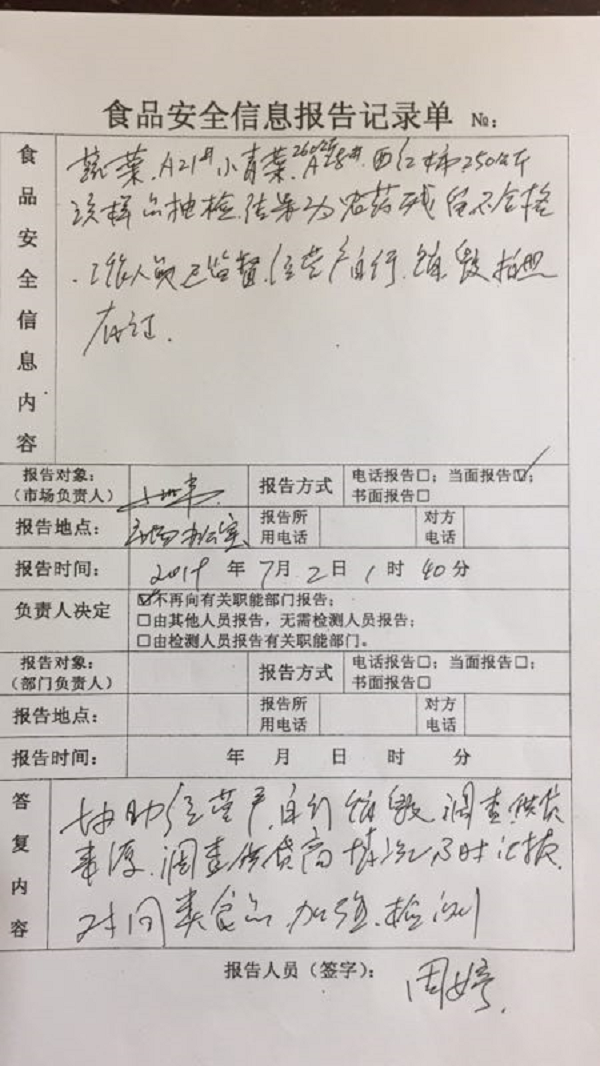 食品安全信息报告记录单 №:
食品安全信息内容
蔬菜.A21#小青菜260公斤A28#.西红柿250公斤
该样品抽检.结果为农药残留不合格
.工作人员已监督.经营户自行.销毁拍照
存证.
报告对象: (市场负责人) 报告方式 电话报告□; 当面报告☑; 书面报告□
报告地点: 市场办公室 报告所用电话 对方电话
报告时间: 2019年7月2日1时40分
负责人决定 ☑不再向有关职能部门报告;
□由其他人员报告,无需检测人员报告;
□由检测人员报告有关职能部门。
报告对象: (部门负责人) 报告方式 电话报告□; 当面报告□; 书面报告□
报告地点: 报告所用电话 对方电话
报告时间: 年 月 日 时 分
答复内容
协助经营户.自行销毁.调查供货
来源.调查供货商情况.及时汇报.
对同类食品.加强.检测
报告人员(签字): 周婷.